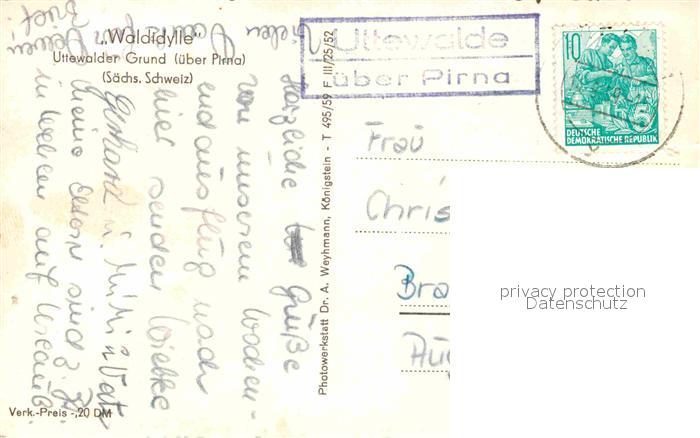 „Waldidylle"
Uttewalder Grund (über Pirna)
(Sächs. Schweiz)
Uttewalde
über Pirna
10
DEUTSCHE
DEMOKRATISCHE REPUBLIK
Photowerkstatt Dr. A. Weyhmann, Königstein - T 495/59 F III/25/52
Herzliche Grüße
von unserem Wochen-
endausflug nach
hier senden Wiebke
Gerhard u. Mutti u. Vati
Meine Eltern sind z. Zt.
in
Vielen Dank für Deinen
Brief
Frau
Chris
Bra
privacy protection
Datenschutz
Verk.-Preis -,20 DM